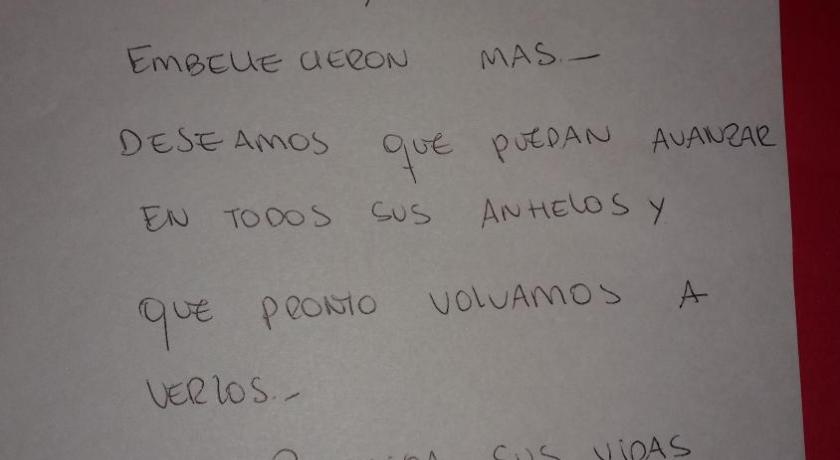 EMBELLECIERON MAS.—
DESEAMOS QUE PUEDAN AVANZAR
EN TODOS SUS ANHELOS Y
QUE PRONTO VOLVAMOS A
VERLOS.-
SUS VIDAS